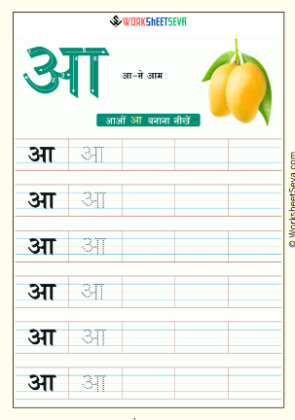 WORKSHEETSEVA
आ
आ-से आम
आओं आ बनाना सीखें
आ आ
आ आ
आ आ
आ आ
आ आ
आ आ
© WorksheetSeva.com